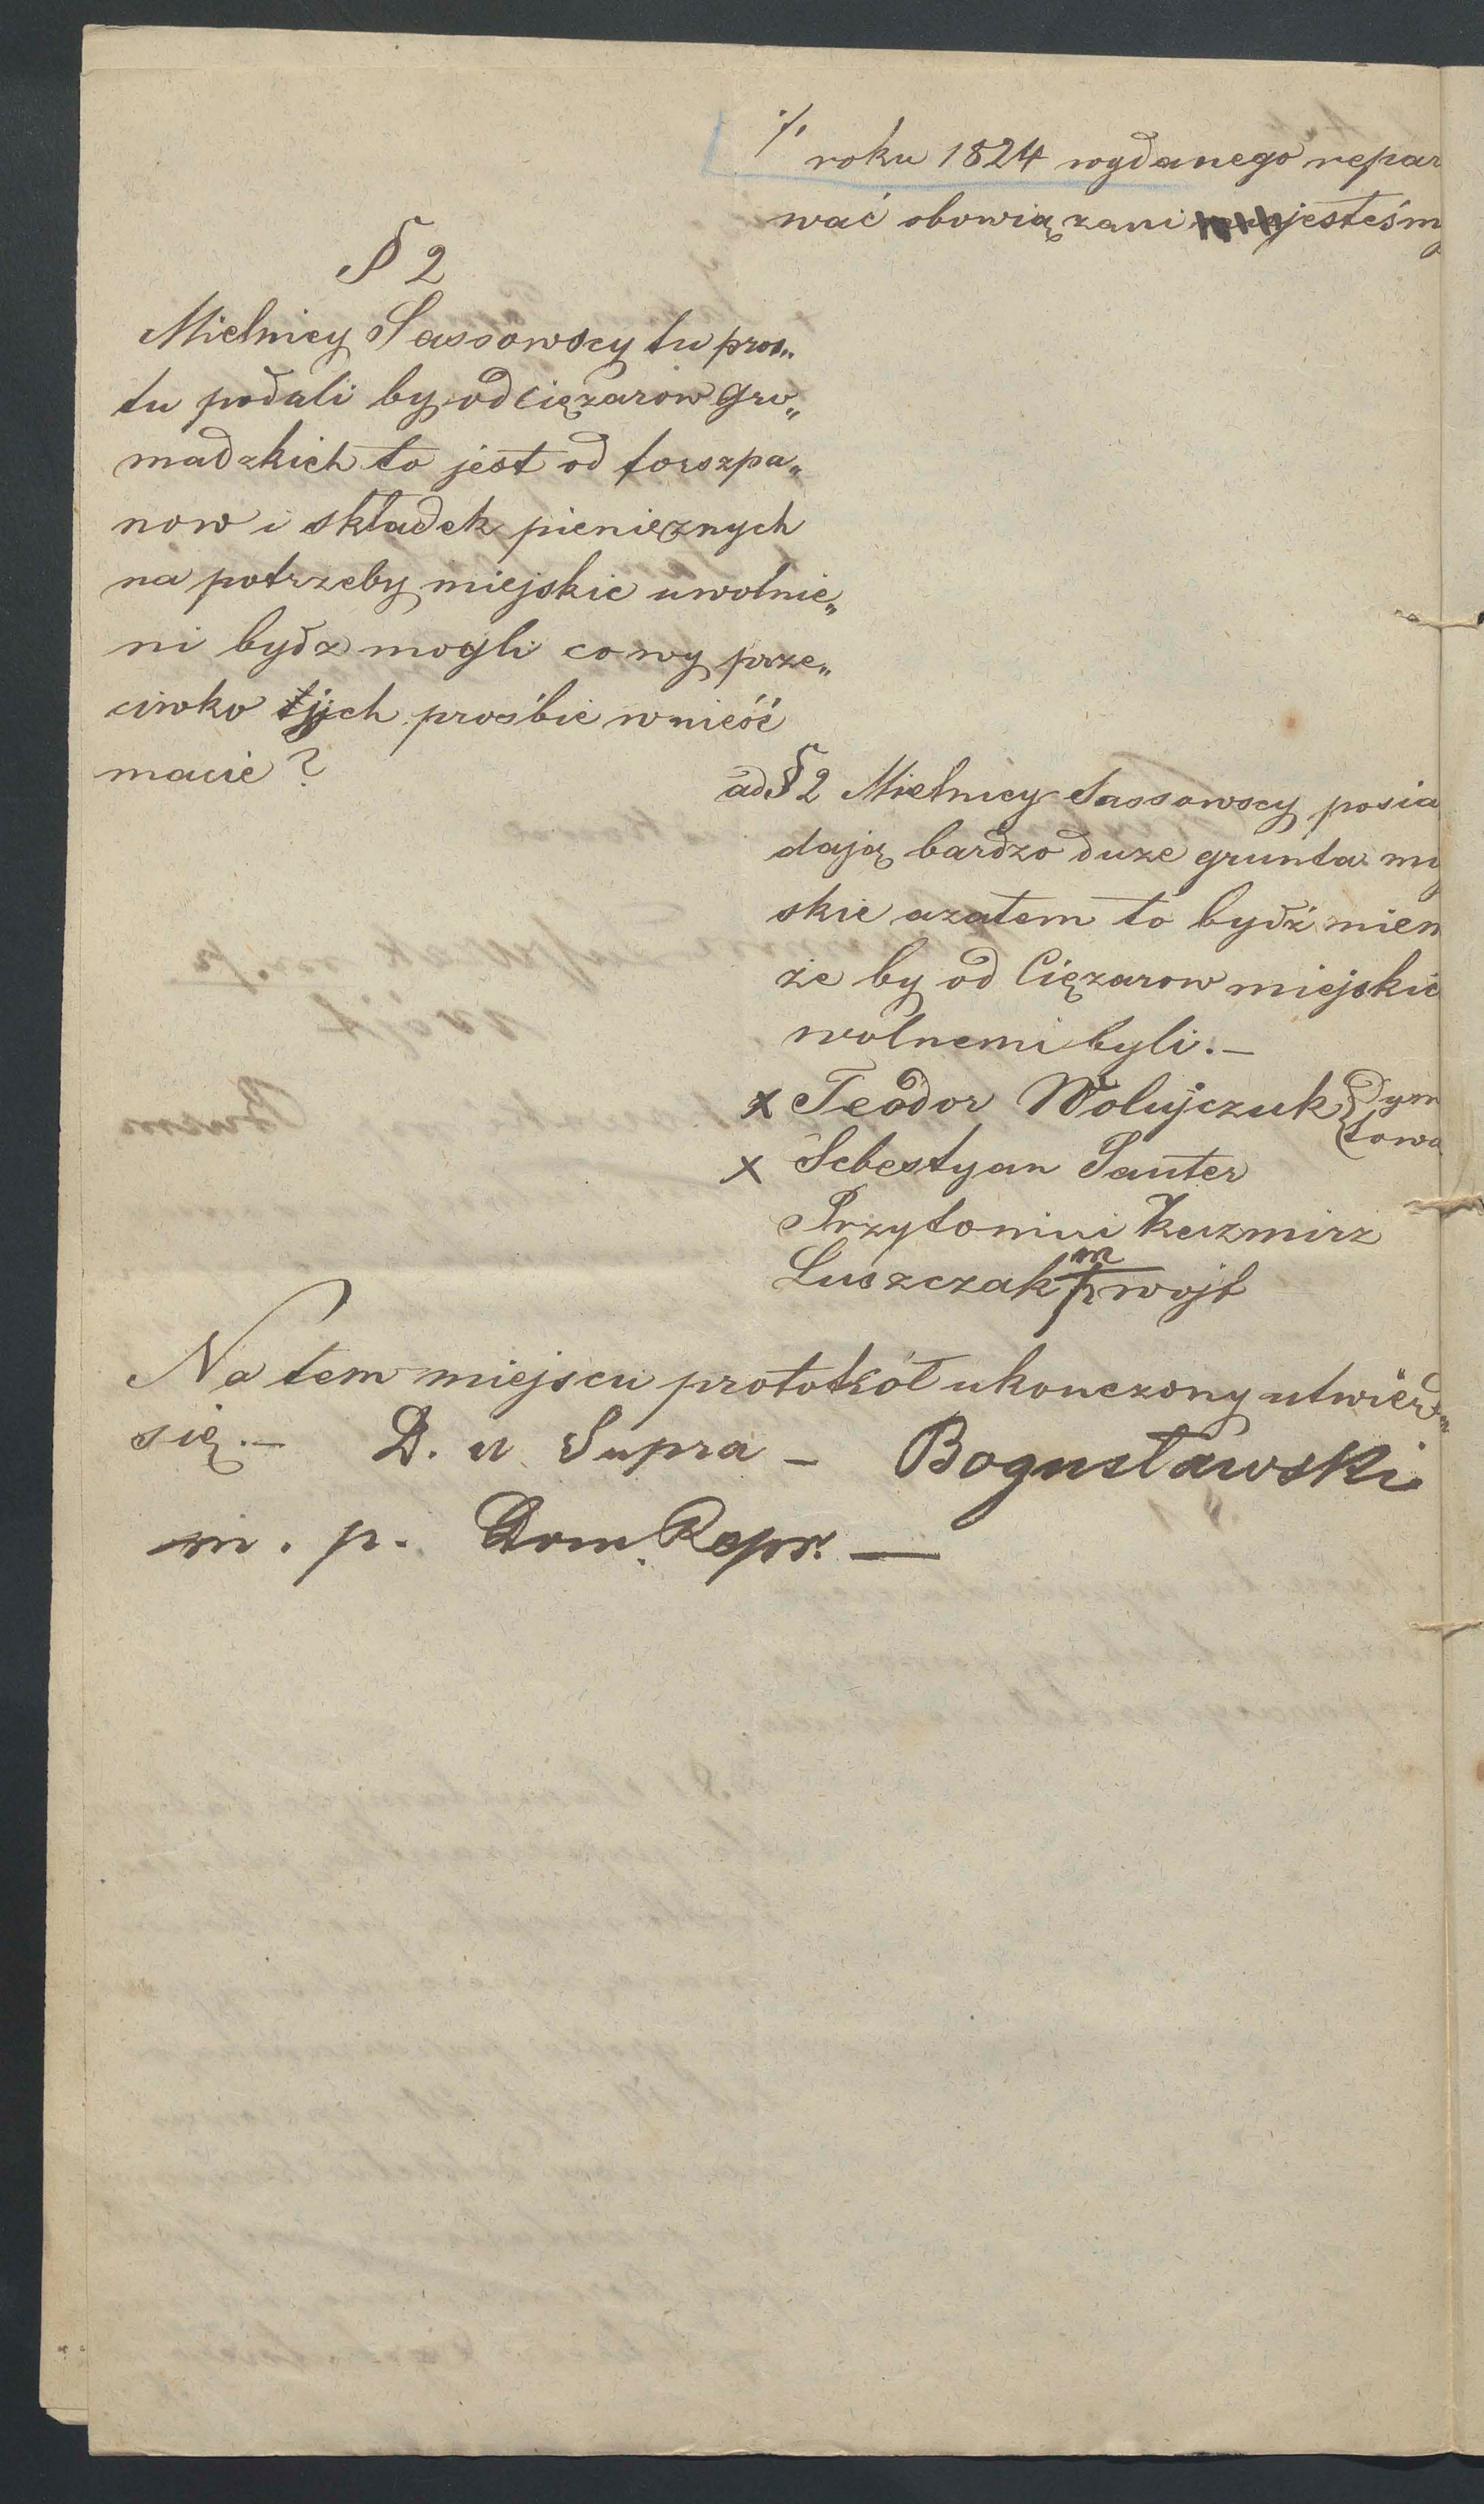 ·/. roku 1824 wydanego repar
wać obowiązani jesteśm
§ 2
Mielnicy Sassowscy tu pros„
tu podali by od ciężarow gro„
madzkich to jest od forszpa„
now i składek pienieznych
na potrzeby miejskie uwolnie„
ni bydz mogli co wy prze„
ciwko ich prośbie wnieść
macie?
ad § 2 Mielnicy Sassowscy posia
dają bardzo duze grunta my
skie azatem to bydź mien
że by od Ciężarow miejskic
wolnemi byli.—
x Teodor Wolujczuk
x Sebestyan Sauter
Przytomni Kazmirz
Luszczak mp wojt
Na tem miejscu prototkół ukonczony utwierd„
się.— D. u Supra — Bogusławski
m. p. Dom. Repr. —